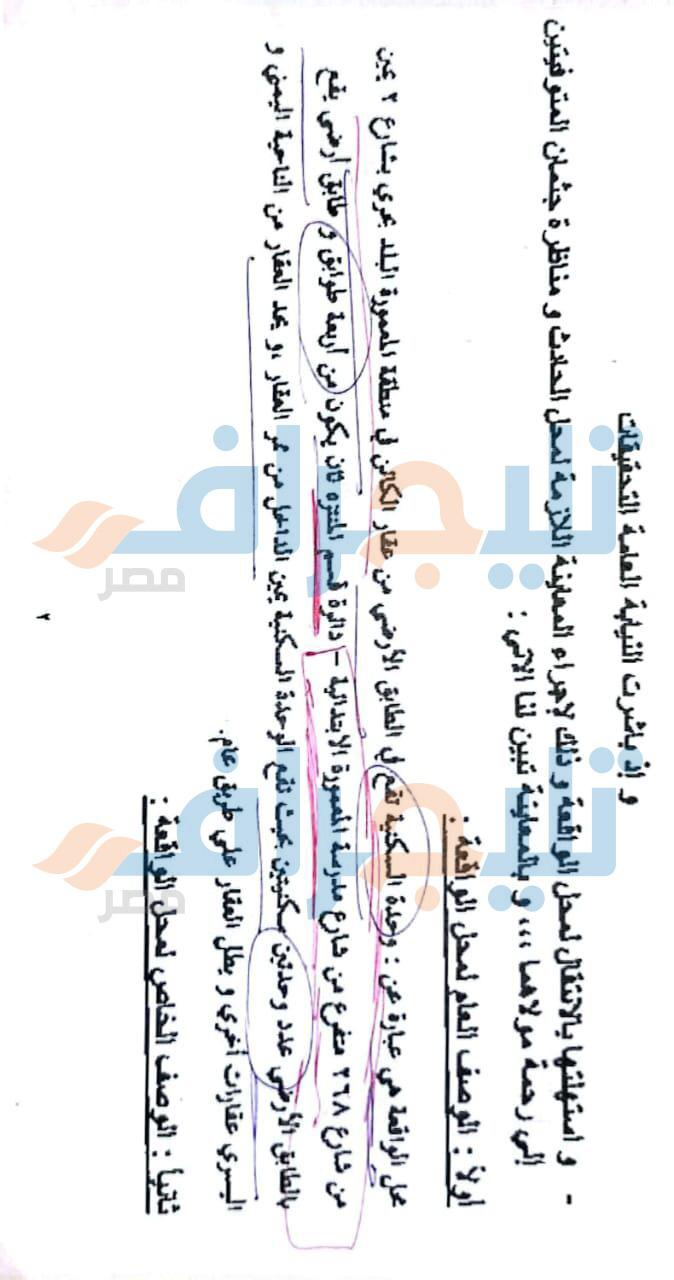 و إذ باشرت النيابة العامة التحقيقات
- و استهلتها بالانتقال لمحل الواقعة و ذلك لإجراء المعاينة اللازمة لمحل الحادث و مناظرة جثمان المتوفيتين
إلي رحمة مولاهما ،،، و بالمعاينة تبين لنا الآتي :
أولاً : الوصف العام لمحل الواقعة :
محل الواقعة هي عبارة عن : وحدة السكنية تقع في الطابق الأرضي من عقار الكائن في منطقة المعمورة البلد بحري بشارع ٢ يمين
من شارع ٢٦٨ متفرع من شارع مدرسة المعمورة الابتدائية – دائرة قسم المنتزه ثان يكون من أربعة طوابق و طابق أرضي يقع
بالطابق الأرضي عدد وحدتين سكنيتين بحيث تقع الوحدة السكنية يمين الداخل من ممر العقار ،و يحد العقار من الناحية اليمني و
اليسري عقارات أخري و يطل العقار علي طريق عام.
ثانياً : الوصف الخاص لمحل الواقعة :
٢
تيجراف مصر
تيجراف مصر